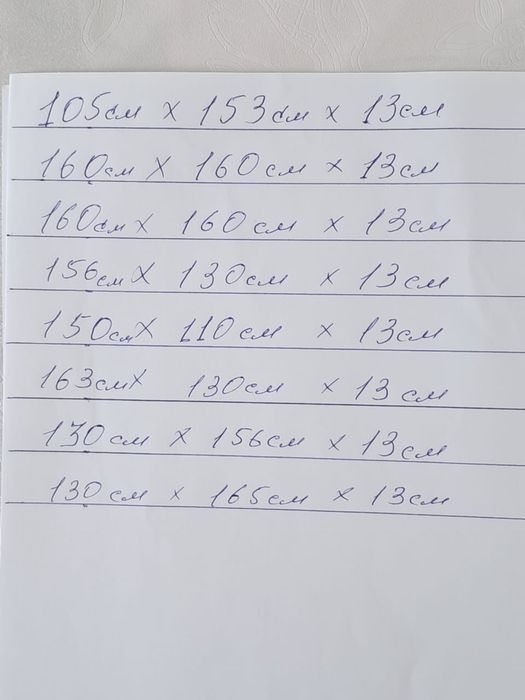 105см х 153см х 13см
160см х 160см х 13см
160см х 160см х 13см
156см х 130см х 13см
150см х 110см х 13см
163см х 130см х 13см
130см х 156см х 13см
130см х 165см х 13см